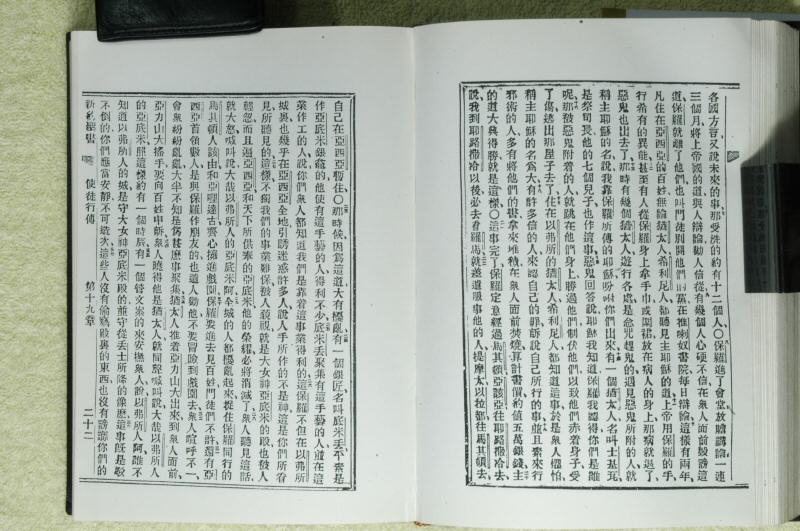 各國方言又說未來的事那受洗的約有十二個人〇保羅進了會堂放膽講論一連
三個月將上帝國的道與人辯論勸人信從有幾個人心硬不信在衆人面前毀謗這
道保羅就離了他們也叫門徒別開他們就在推喇奴書院每日辯論這樣有兩年
凡住在亞西亞的百姓無論猶太人希利尼人都聽見主耶穌的道上帝用保羅的手
行希有的異能甚至有人從保羅身上拿手巾或圍裙放在病人的身上那病就退了
惡鬼也出去了那時有幾個猶太人遊行各處是念咒趕鬼的遇見惡鬼所附的人就
稱主耶穌的名說我靠保羅所傳的耶穌吩咐你們出來有一個猶太人名叫士基瓦
是祭司長他的七個兒子也作這事惡鬼回答說耶穌我知道保羅我認得你們是誰
呢那被惡鬼附着的人就跳在他們身上勝過他們制伏他們以致他們赤着身子受
了傷逃出那屋子去了住在以弗所的猶太人希利尼人都知道這事於是衆人懼怕
稱主耶穌的名爲大有許多信的人來認自己的罪訴說自己所行的事並且素來行
邪術的人多有將他們的書拿來堆積在衆人面前焚燒算計書價約值五萬銀錢主
的道大興得勝就是這樣〇這事完了保羅定意經過馬其頓亞該亞往耶路撒冷去
說我到耶路撒冷以後必去看羅馬就差遣服事他的人提摩太以拉都往馬其頓去
自己在亞西亞暫住〇那時候因爲這道大有擾亂有一個銀匠名叫底米丟素是
作亞底米銀龕的他使有這手藝的人得利不少底米丟聚集有這手藝的人並在這
業作工的人說你們衆人都知道我們是靠着這事業得利的這保羅不但在以弗所
城裏也幾乎在亞西亞全地引誘迷惑許多人說人手所作的不是神這是你們所看
見所聽見的這樣不獨我們的事業難保被人藐視就是大女神亞底米的殿也被人
輕忽而且連亞西亞和天下所供奉的亞底米他的榮耀必將消滅了衆人聽見這話
就大怒喊叫說大哉以弗所人的亞底米阿全城的人都擾亂起來捉住保羅同行的
馬其頓人該由和亞哩達古齊心擁進戲園保羅要進去見百姓門徒們不許還有亞
西亞首領數人是與保羅作朋友的也遣人勸他不要冒險到戲園去衆人喧呼不一
會衆紛紛亂亂大半不知是爲甚麽事聚集猶太人推着亞力山大出來到衆人面前
亞力山大搖手要向百姓申訴衆人曉得他是猶太人就同聲喊叫說大哉以弗所人
的亞底米照這樣約有一個時辰有一個管文案的來安撫衆人說以弗所人阿誰不
知道以弗所人的城是守大女神亞底米殿的並守從丟士所降的像麽這事旣是駁
不倒的你們應當安靜不可造次這些人沒有偷竊殿裏的東西也沒有謗讟你們的
新約聖書 使徒行傳 第十九章 二十二